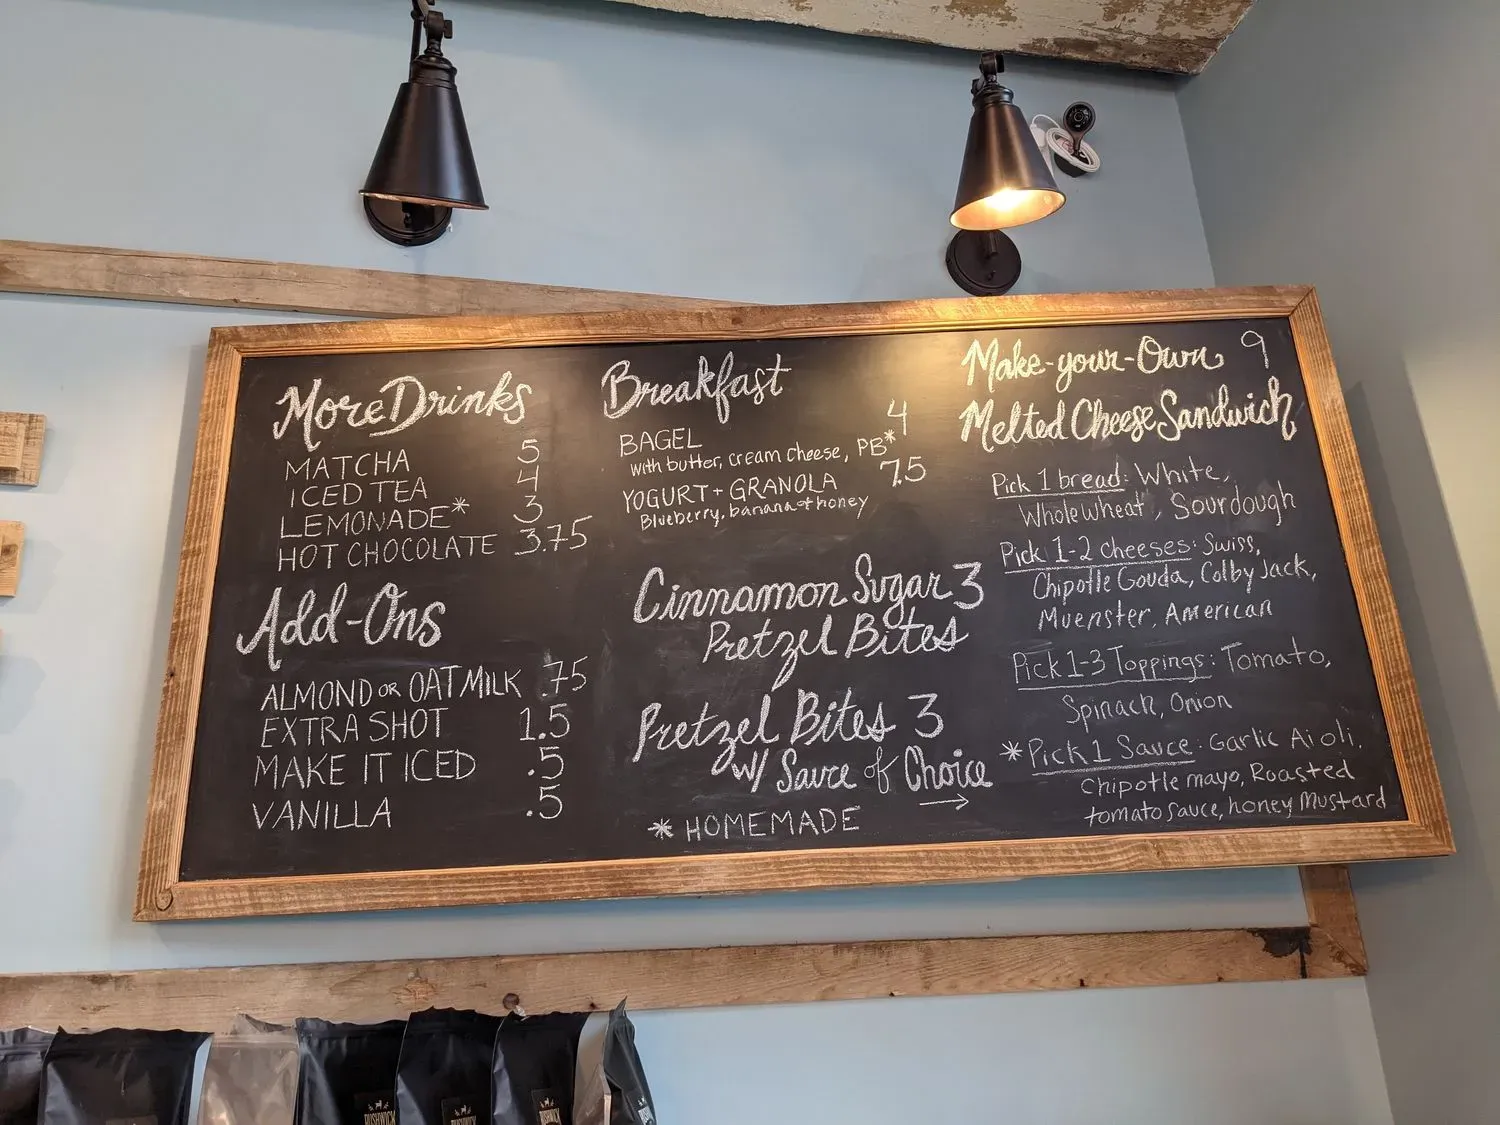 More Drinks
MATCHA 5
ICED TEA 4
LEMONADE* 3
HOT CHOCOLATE 3.75
Add-Ons
ALMOND OR OAT MILK .75
EXTRA SHOT 1.5
MAKE IT ICED .5
VANILLA .5
Breakfast
BAGEL 4
with butter, cream cheese, PB*
YOGURT + GRANOLA 7.5
Blueberry, banana + honey
Cinnamon Sugar 3
Pretzel Bites
Pretzel Bites 3
w/ Sauce of Choice
→
* HOMEMADE
Make-your-Own 9
Melted Cheese Sandwich
Pick 1 bread: White,
Whole wheat, Sourdough
Pick 1-2 cheeses: Swiss,
Chipotle Gouda, Colby Jack,
Muenster, American
Pick 1-3 Toppings: Tomato,
Spinach, Onion
* Pick 1 Sauce: Garlic Aioli,
Chipotle mayo, Roasted
tomato sauce, honey Mustard
BUSHWICK
BUSHWICK
BUSHWICK